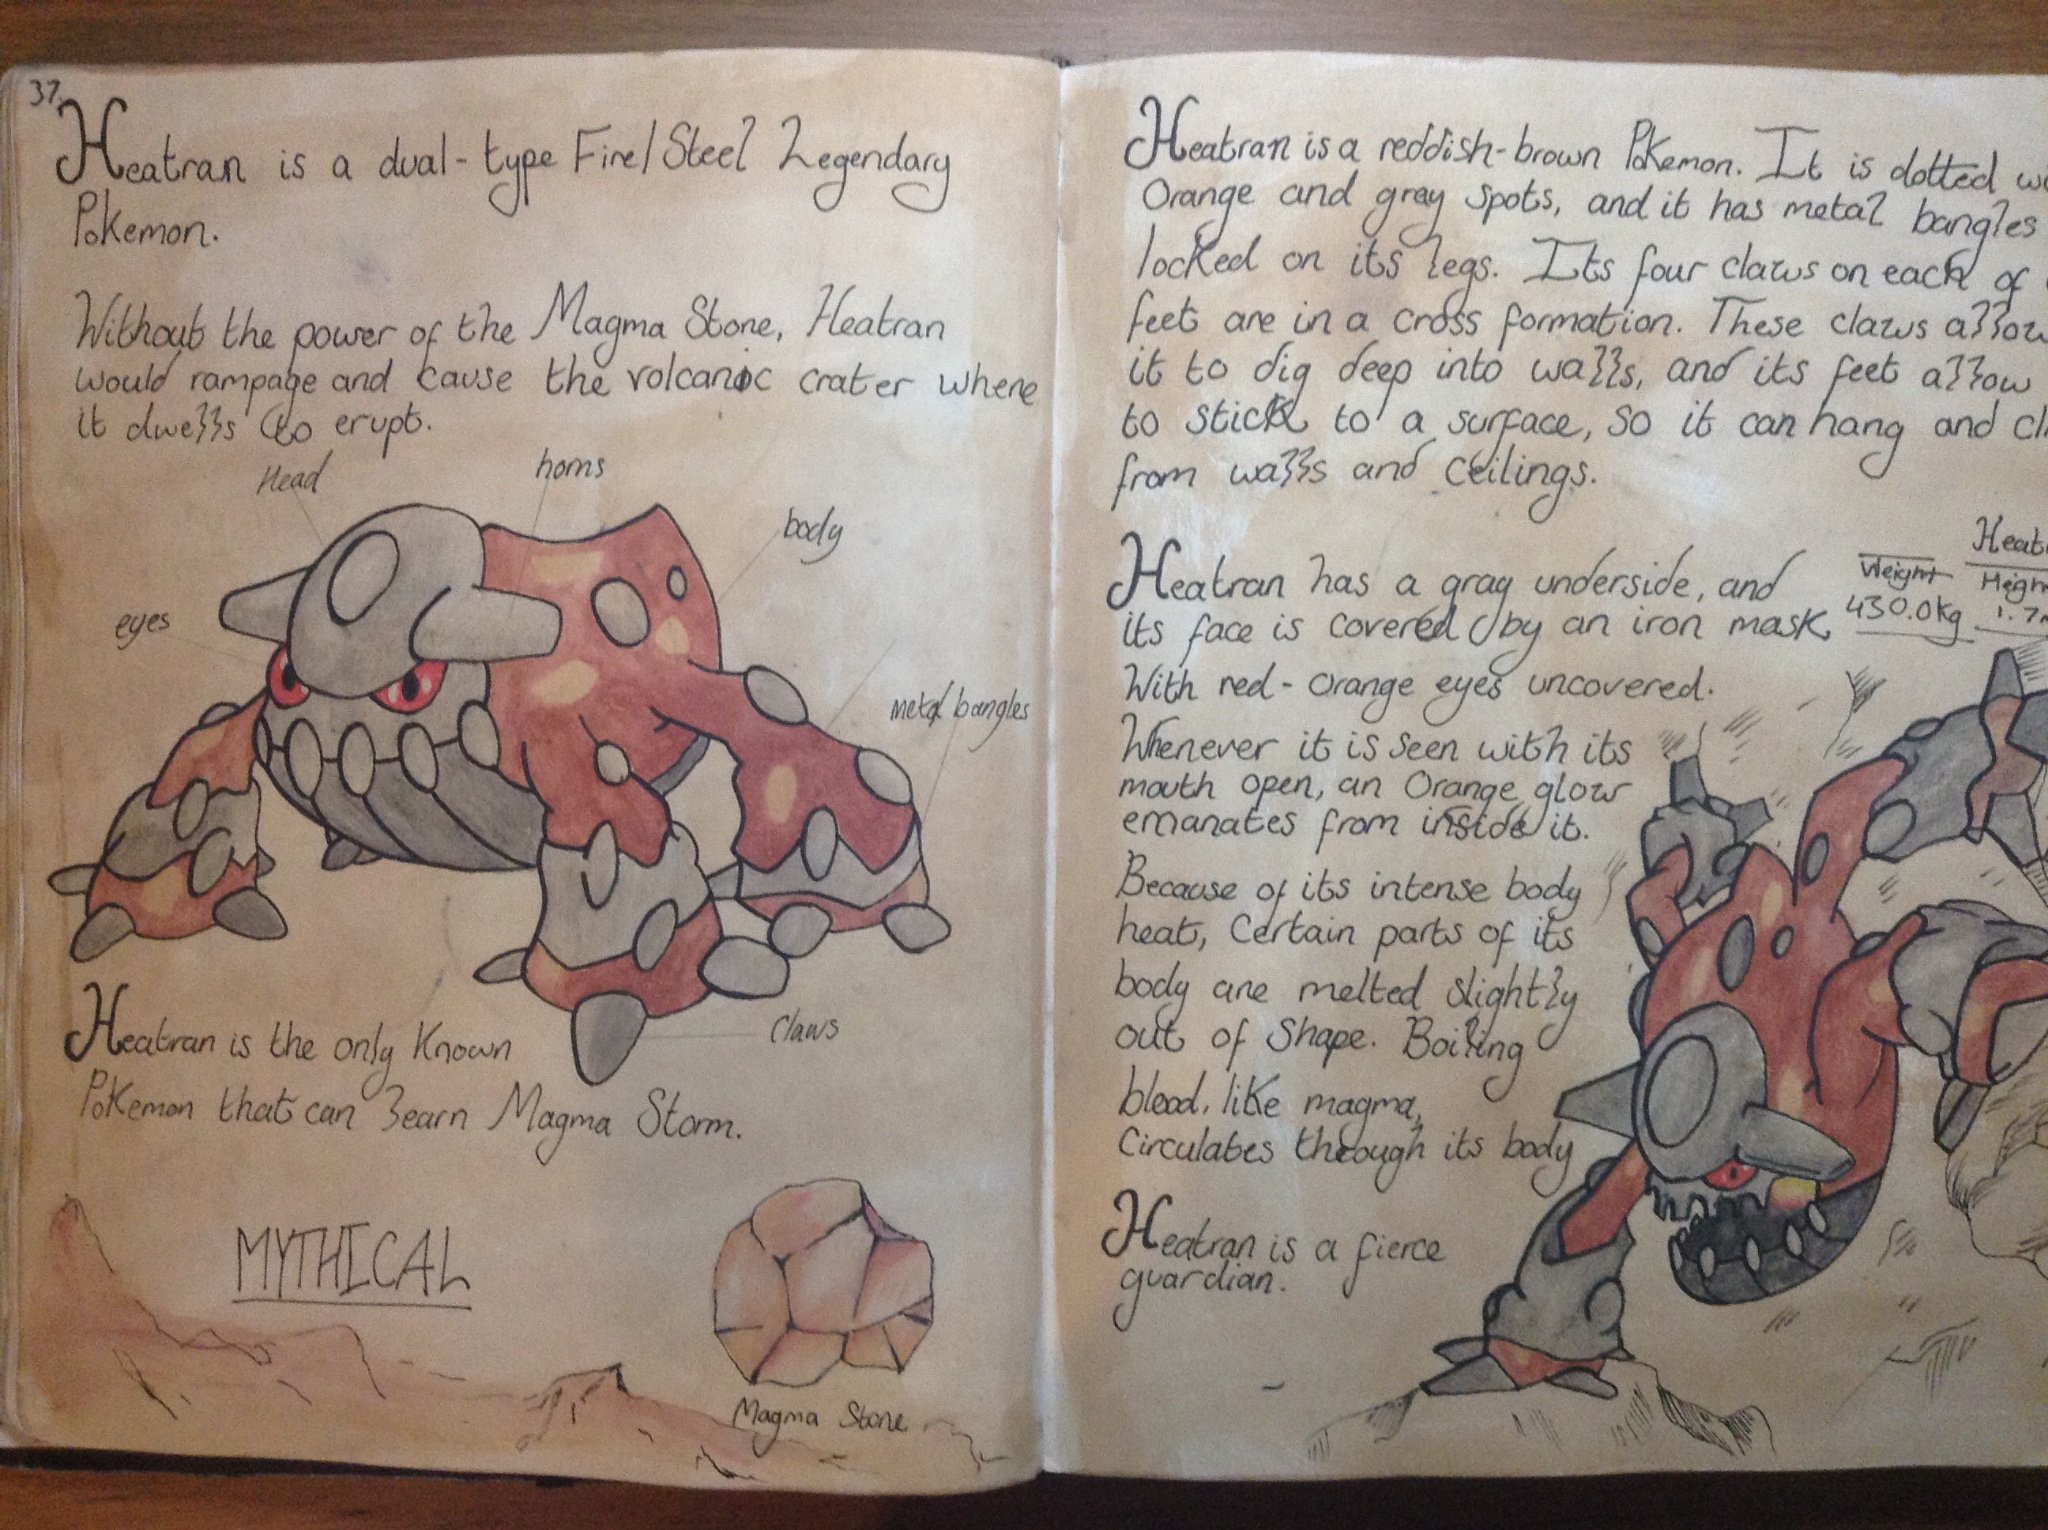 37.
Heatran is a dual-type Fire/Steel Legendary
Pokemon.
Without the power of the Magma Stone, Heatran
would rampage and cause the volcanic crater where
it dwells to erupt.
Head
horns
body
eyes
metal bangles
claws
Heatran is the only known
Pokemon that can learn Magma Storm.
MYTHICAL
Magma Stone
Heatran is a reddish-brown Pokemon. It is dotted
Orange and gray spots, and it has metal bangles
locked on its legs. Its four claws on each of
feet are in a cross formation. These claws
it to dig deep into walls, and its feet allow
to stick to a surface, so it can hang and
from walls and ceilings.
Heatran has a gray underside, and
its face is covered by an iron mask
With red-orange eyes uncovered.
Whenever it is seen with its
mouth open, an Orange glow
emanates from inside it.
Because of its intense body
heat, Certain parts of its
body are melted slightly
out of Shape. Boiling
blood, like magma,
Circulates through its body
Heatran is a fierce
guardian.
Weight
430.0kg